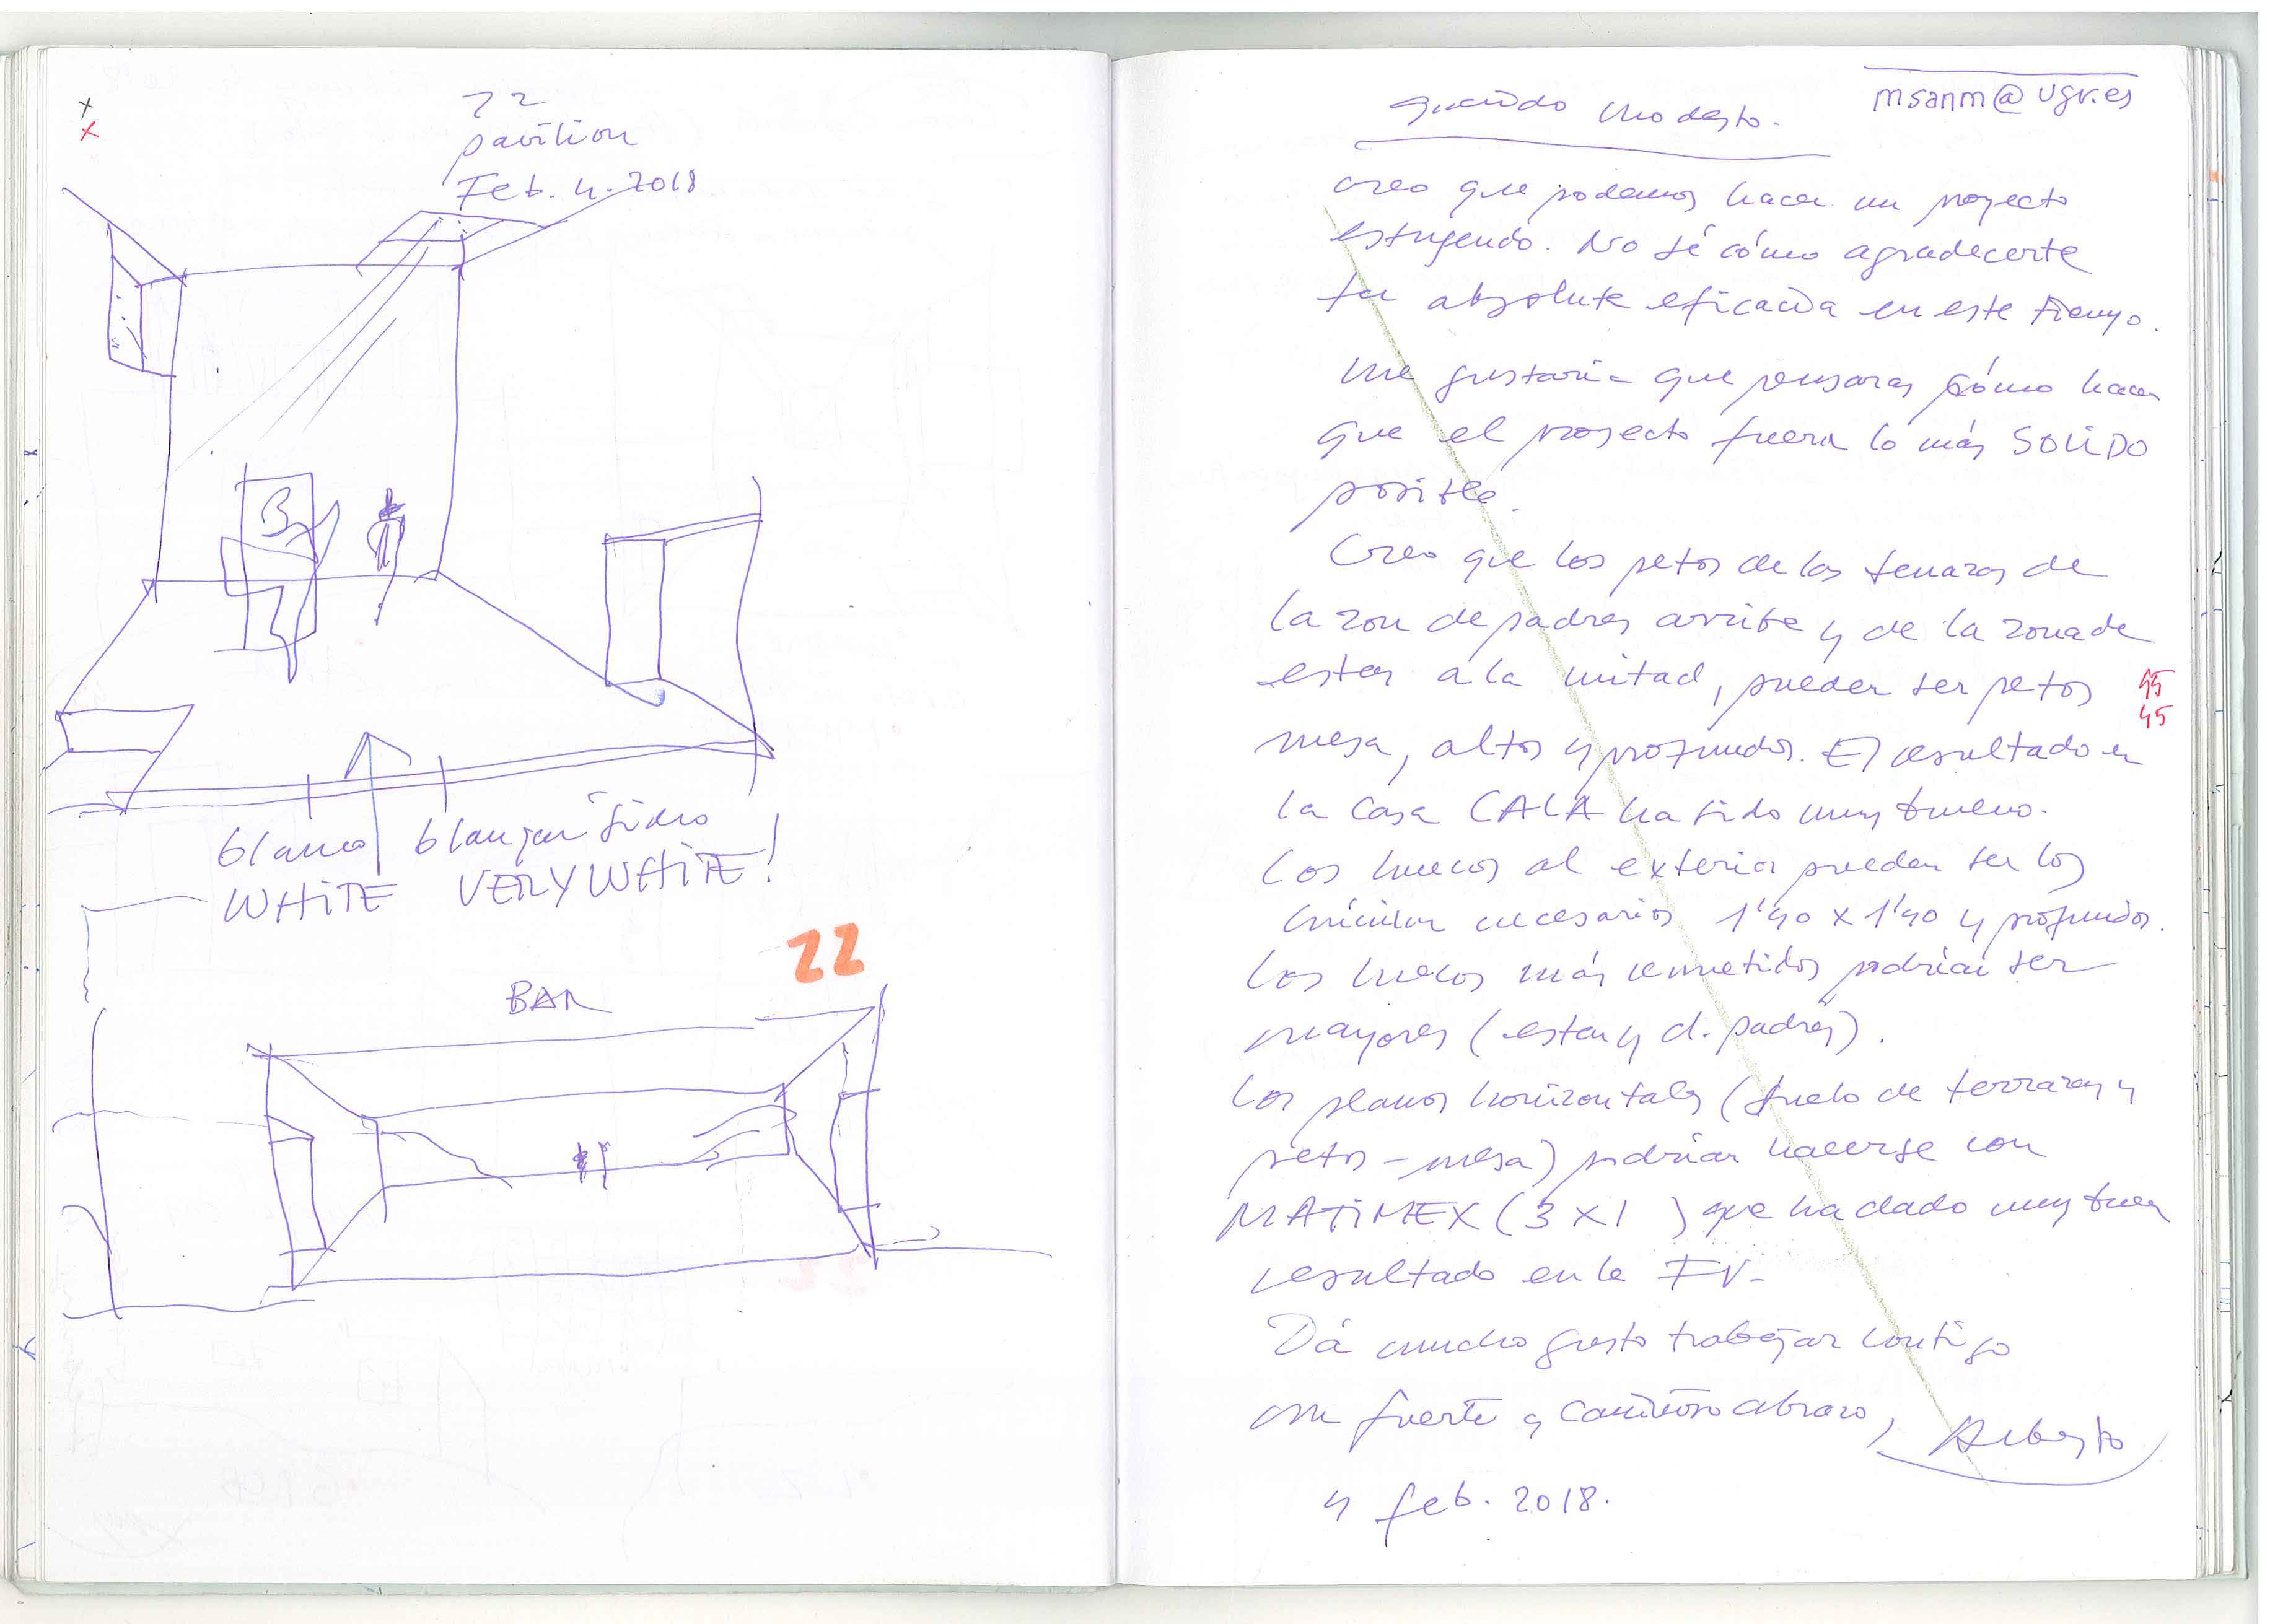 22
pavilion
Feb. 4. 2018
blanco blanquísimo
WHITE VERY WHITE!
22
BAR
msanm@ugr.es
Querido Modesto.
creo que podemos hacer un proyecto
estupendo. No sé cómo agradecerte
tu absoluta eficacia en este tiempo.
Me gustaría que pensaras cómo hacer
que el proyecto fuera lo más SOLIDO
posible.
Creo que los petos de las terrazas de
la zon de padres arriba y de la zona de
estar a la mitad, pueden ser petos
45
45
mesa, altos y profundos. El resultado en
la casa CALA ha sido muy bueno.
Los huecos al exterior pueden ser los
mínimos necesarios 1'40 x 1'40 y profundos.
Los huecos más remetidos podrían ser
mayores (estar y d. padres).
Los planos horizontales (suelo de terrazas y
petos-mesa) podrían hacerse con
MATIMEX (3 x 1 ) que ha dado muy buen
resultado en la IV-
Dá mucho gusto trabajar contigo
un fuerte y cariñoso abrazo,
Alberto
4 feb. 2018.